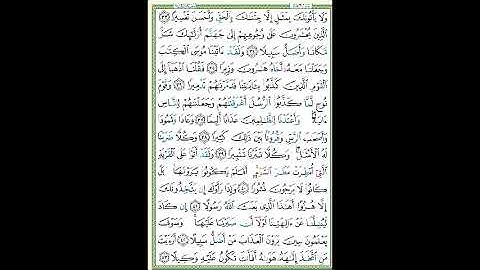 وَلَا يَأْتُونَكَ بِمَثَلٍ إِلَّا جِئْنَٰكَ بِٱلْحَقِّ وَأَحْسَنَ تَفْسِيرًا ﴿٣٣﴾
ٱلَّذِينَ يُحْشَرُونَ عَلَىٰ وُجُوهِهِمْ إِلَىٰ جَهَنَّمَ أُو۟لَٰٓئِكَ شَرٌّ
مَّكَانًا وَأَضَلُّ سَبِيلًا ﴿٣٤﴾ وَلَقَدْ ءَاتَيْنَا مُوسَى ٱلْكِتَٰبَ
وَجَعَلْنَا مَعَهُۥٓ أَخَاهُ هَٰرُونَ وَزِيرًا ﴿٣٥﴾ فَقُلْنَا ٱذْهَبَآ إِلَى
ٱلْقَوْمِ ٱلَّذِينَ كَذَّبُوا۟ بِـَٔايَٰتِنَا فَدَمَّرْنَٰهُمْ تَدْمِيرًا ﴿٣٦﴾ وَقَوْمَ
نُوحٍ لَّمَّا كَذَّبُوا۟ ٱلرُّسُلَ أَغْرَقْنَٰهُمْ وَجَعَلْنَٰهُمْ لِلنَّاسِ
ءَايَةً وَأَعْتَدْنَا لِلظَّٰلِمِينَ عَذَابًا أَلِيمًا ﴿٣٧﴾ وَعَادًا وَثَمُودَا۟
وَأَصْحَٰبَ ٱلرَّسِّ وَقُرُونًۢا بَيْنَ ذَٰلِكَ كَثِيرًا ﴿٣٨﴾ وَكُلًّا ضَرَبْنَا
لَهُ ٱلْأَمْثَٰلَ وَكُلًّا تَبَّرْنَا تَتْبِيرًا ﴿٣٩﴾ وَلَقَدْ أَتَوْا۟ عَلَى ٱلْقَرْيَةِ
ٱلَّتِىٓ أُمْطِرَتْ مَطَرَ ٱلسَّوْءِ أَفَلَمْ يَكُونُوا۟ يَرَوْنَهَا بَلْ
كَانُوا۟ لَا يَرْجُونَ نُشُورًا ﴿٤٠﴾ وَإِذَا رَأَوْكَ إِن يَتَّخِذُونَكَ
إِلَّا هُزُوًا أَهَٰذَا ٱلَّذِى بَعَثَ ٱللَّهُ رَسُولًا ﴿٤١﴾ إِن كَادَ
لَيُضِلُّنَا عَنْ ءَالِهَتِنَا لَوْلَآ أَن صَبَرْنَا عَلَيْهَا وَسَوْفَ
يَعْلَمُونَ حِينَ يَرَوْنَ ٱلْعَذَابَ مَنْ أَضَلُّ سَبِيلًا ﴿٤٢﴾ أَرَءَيْتَ
مَنِ ٱتَّخَذَ إِلَٰهَهُۥ هَوَىٰهُ أَفَأَنتَ تَكُونُ عَلَيْهِ وَكِيلًا ﴿٤٣﴾